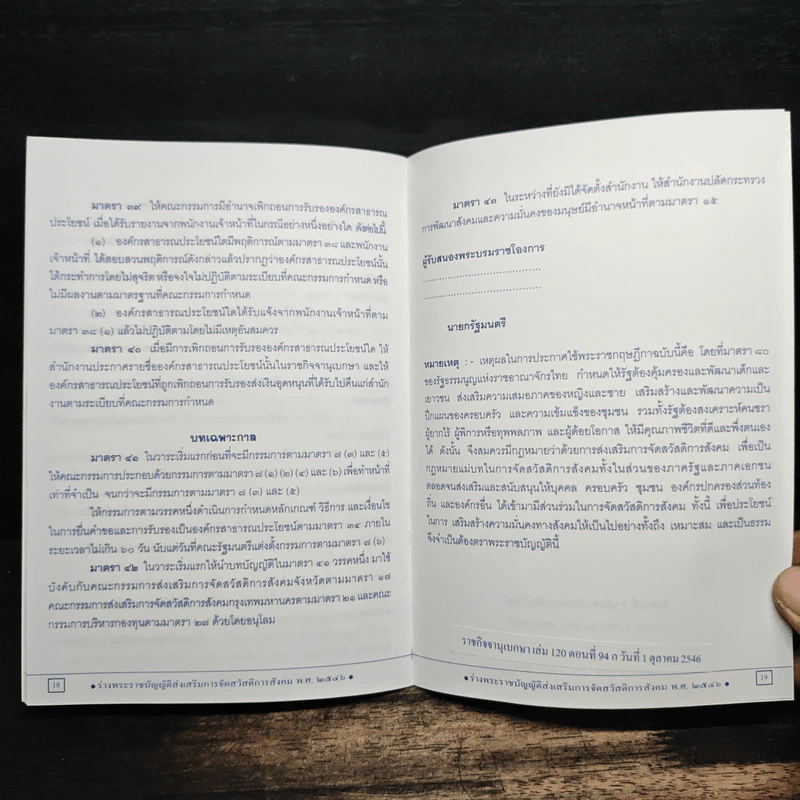 มาตรา ๓๙ ให้คณะกรรมการมีอำนาจเพิกถอนการรับรององค์กรสาธารณ
ประโยชน์ เมื่อได้รับรายงานจากพนักงานเจ้าหน้าที่ในกรณีอย่างหนึ่งอย่างใด ดังต่อไปนี้
(๑) องค์กรสาธารณประโยชน์ใดมีพฤติการณ์ตามมาตรา ๓๘ และพนักงาน
เจ้าหน้าที่ ได้สอบสวนพฤติการณ์ดังกล่าวแล้วปรากฏว่าองค์กรสาธารณประโยชน์นั้น
ได้กระทำการโดยไม่สุจริต หรือจงใจไม่ปฏิบัติตามระเบียบที่คณะกรรมการกำหนด หรือ
ไม่มีผลงานตามมาตรฐานที่คณะกรรมการกำหนด
(๒) องค์กรสาธารณประโยชน์ใดได้รับแจ้งจากพนักงานเจ้าหน้าที่ตาม
มาตรา ๓๘ (๑) แล้วไม่ปฏิบัติตามโดยไม่มีเหตุอันสมควร
มาตรา ๔๐ เมื่อมีการเพิกถอนการรับรององค์กรสาธารณประโยชน์ใด ให้
สำนักงานประกาศรายชื่อองค์กรสาธารณประโยชน์นั้นในราชกิจจานุเบกษา และให้
องค์กรสาธารณประโยชน์ที่ถูกเพิกถอนการรับรองส่งเงินอุดหนุนที่ได้รับไปคืนแก่สำนัก
งานตามระเบียบที่คณะกรรมการกำหนด
บทเฉพาะกาล
มาตรา ๔๑ ในวาระเริ่มแรกก่อนที่จะมีกรรมการตามมาตรา ๗ (๓) และ (๕)
ให้คณะกรรมการประกอบด้วยกรรมการตามมาตรา ๗ (๑) (๒) (๔) และ (๖) เพื่อทำหน้าที่
เท่าที่จำเป็น จนกว่าจะมีกรรมการตามมาตรา ๗ (๓) และ (๕)
ให้กรรมการตามวรรคหนึ่งดำเนินการกำหนดหลักเกณฑ์ วิธีการ และเงื่อนไข
ในการยื่นคำขอและการรับรองเป็นองค์กรสาธารณประโยชน์ตามมาตรา ๓๔ ภายใน
ระยะเวลาไม่เกิน ๖๐ วัน นับแต่วันที่คณะรัฐมนตรีแต่งตั้งกรรมการตามมาตรา ๗ (๖)
มาตรา ๔๒ ในวาระเริ่มแรกให้นำบทบัญญัติในมาตรา ๔๑ วรรคหนึ่ง มาใช้
บังคับกับคณะกรรมการส่งเสริมการจัดสวัสดิการสังคมจังหวัดตามมาตรา ๑๗
คณะกรรมการส่งเสริมการจัดสวัสดิการสังคมกรุงเทพมหานครตามมาตรา ๒๑ และคณะ
กรรมการบริหารกองทุนตามมาตรา ๒๗ ด้วยโดยอนุโลม
18 • ร่างพระราชบัญญัติส่งเสริมการจัดสวัสดิการสังคม พ.ศ. ๒๕๔๖ •
มาตรา ๔๓ ในระหว่างที่ยังมิได้จัดตั้งสำนักงาน ให้สำนักงานปลัดกระทรวง
การพัฒนาสังคมและความมั่นคงของมนุษย์มีอำนาจหน้าที่ตามมาตรา ๑๕
ผู้รับสนองพระบรมราชโองการ
..............................
..............................
นายกรัฐมนตรี
หมายเหตุ :- เหตุผลในการประกาศใช้พระราชกฤษฎีกาฉบับนี้คือ โดยที่มาตรา ๘๐
ของรัฐธรรมนูญแห่งราชอาณาจักรไทย กำหนดให้รัฐต้องคุ้มครองและพัฒนาเด็กและ
เยาวชน ส่งเสริมความเสมอภาคของหญิงและชาย เสริมสร้างและพัฒนาความเป็น
ปึกแผ่นของครอบครัว และความเข้มแข็งของชุมชน รวมทั้งรัฐต้องสงเคราะห์คนชรา
ผู้ยากไร้ ผู้พิการหรือทุพพลภาพ และผู้ด้อยโอกาส ให้มีคุณภาพชีวิตที่ดีและพึ่งตนเอง
ได้ ดังนั้น จึงสมควรมีกฎหมายว่าด้วยการส่งเสริมการจัดสวัสดิการสังคม เพื่อเป็น
กฎหมายแม่บทในการจัดสวัสดิการสังคมทั้งในส่วนของภาครัฐและภาคเอกชน
ตลอดจนส่งเสริมและสนับสนุนให้บุคคล ครอบครัว ชุมชน องค์กรปกครองส่วนท้อง
ถิ่น และองค์กรอื่น ได้เข้ามามีส่วนร่วมในการจัดสวัสดิการสังคม ทั้งนี้ เพื่อประโยชน์
ในการ เสริมสร้างความมั่นคงทางสังคมให้เป็นไปอย่างทั่งถึง เหมาะสม และเป็นธรรม
จึงจำเป็นต้องตราพระราชบัญญัตินี้
ราชกิจจานุเบกษา เล่ม 120 ตอนที่ 94 ก วันที่ 1 ตุลาคม 2546
• ร่างพระราชบัญญัติส่งเสริมการจัดสวัสดิการสังคม พ.ศ. ๒๕๔๖ • 19